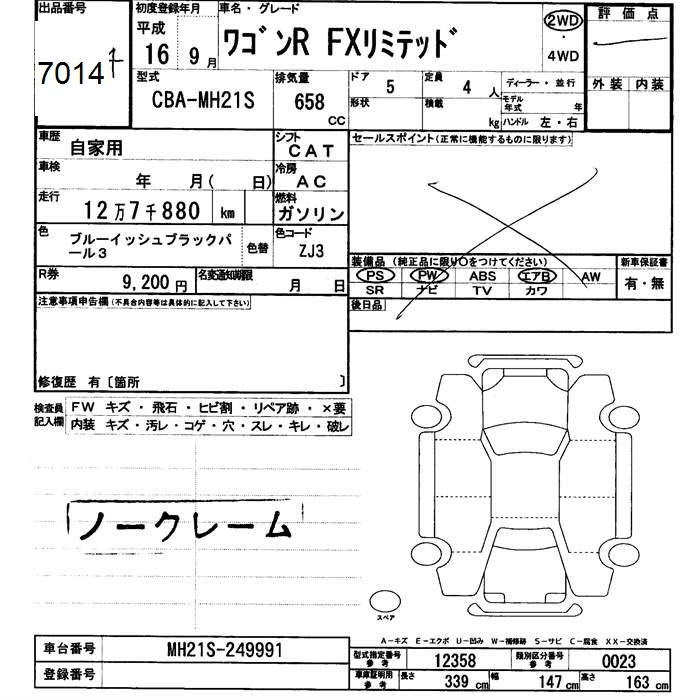 出品番号
初度登録年月
車名・グレード
評価点
7014
平成
16 9月
ワゴンR FXリミテッド
2WD
・
4WD
型式
CBA-MH21S
排気量
658
cc
ドア 5
定員 4 人
ディーラー・並行
外装 内装
形状
積載 kg
モデル年式 年
ハンドル 左・右
車歴
自家用
シフト
CAT
セールスポイント(正常に機能するものに限ります)
車検
年 月( 日)
冷房
AC
走行
12万7千880 km
燃料
ガソリン
色
ブルーイッシュブラックパール3
色替
色コード
ZJ3
装備品(純正品に限り○をつけてください)
新車保証書
PS PW ABS エアB AW
有・無
SR ナビ TV カワ
R券
9,200円
名変通知期限
月 日
後日品
注意事項申告欄(不具合内容等は具体的に記入して下さい)
修復歴 有〔箇所 〕
検査員記入欄
FW キズ・飛石・ヒビ割・リペア跡・×要
内装 キズ・汚レ・コゲ・穴・スレ・キレ・破レ
ノークレーム
スペア
A-キズ E-エクボ U-凹み W-補修跡 S-サビ C-腐食 XX-交換済
車台番号
MH21S-249991
型式指定番号 参考
12358
類別区分番号 参考
0023
登録番号
車庫証明用 参考
長さ 339cm
幅 147cm
高さ 163cm